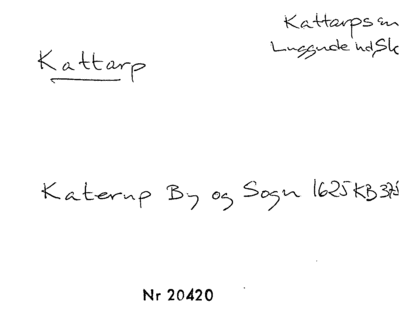 Kattarp
Kattarps sn
Luggude hd Sk
Katerup By og Sogn 1625 KB 375
Nr 20420